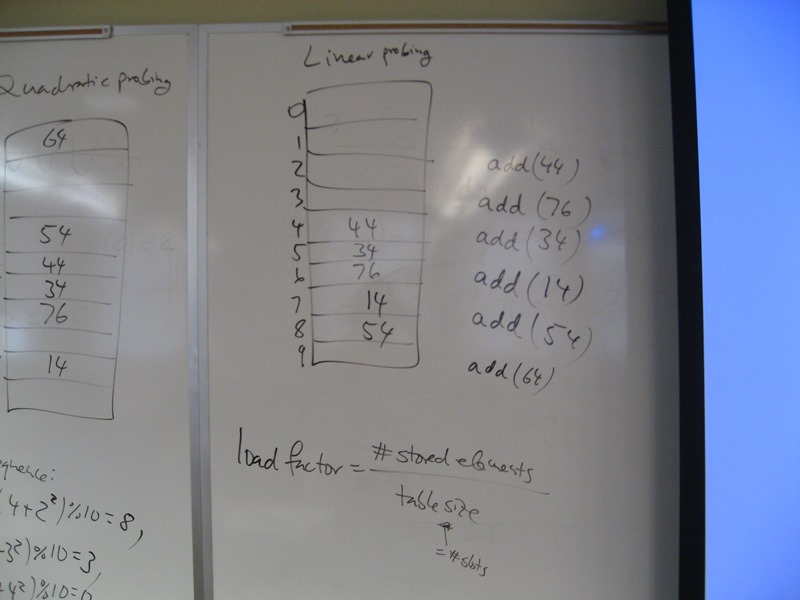 Quadratic probing
64
54
44
34
76
14
equence:
4+2²)%10=8,
3²)%10=3,
4²)%10=0
Linear probing
0
1
2
3
4 44
5 34
6 76
7 14
8 54
9
add(44)
add(76)
add(34)
add(14)
add(54)
add(64)
load factor = # stored elements
table size
= # slots